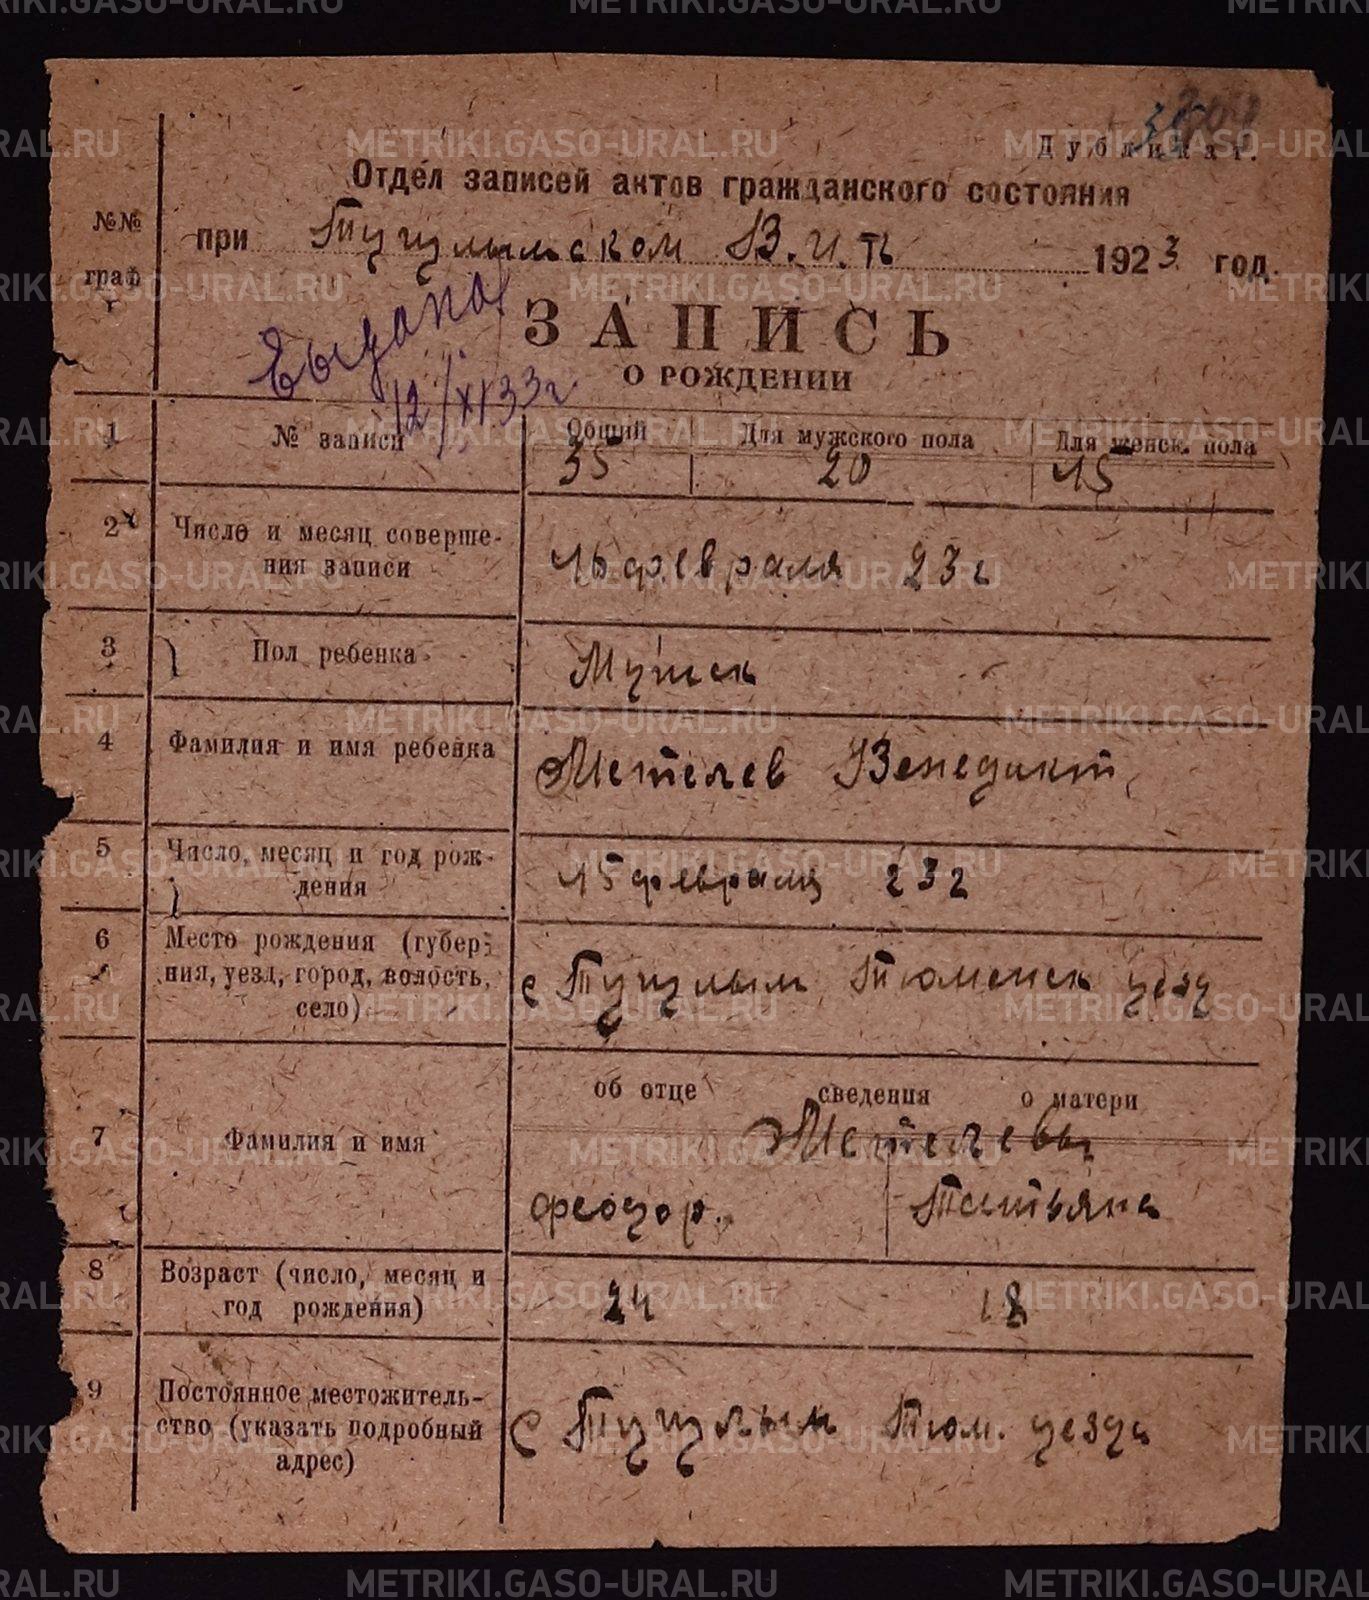 Дубликат.
Отдел записей актов гражданского состояния
№№ граф
при Тугулымском В.И.К. 1923 год.
Выдана
12/XI 33 г
ЗАПИСЬ
О РОЖДЕНИИ
1 № записи Общий Для мужского пола Для женск. пола
35 20 15
2 Число и месяц соверше-
ния записи
февраля 23 г
3 Пол ребенка Мужск
4 Фамилия и имя ребенка Метелев Венедикт
5 Число, месяц и год рож-
дения
15 февраля 23 г
6 Место рождения (губер-
ния, уезд, город, волость,
село)
с Тугулым Тюменск уезд
об отце сведения о матери
7 Фамилия и имя Метелевы
Феодор. Татьяна
8 Возраст (число, месяц и
год рождения)
24 18
9 Постоянное местожитель-
ство (указать подробный
адрес)
с Тугулым Тюм. уезда
METRIKI.GASO-URAL.RU